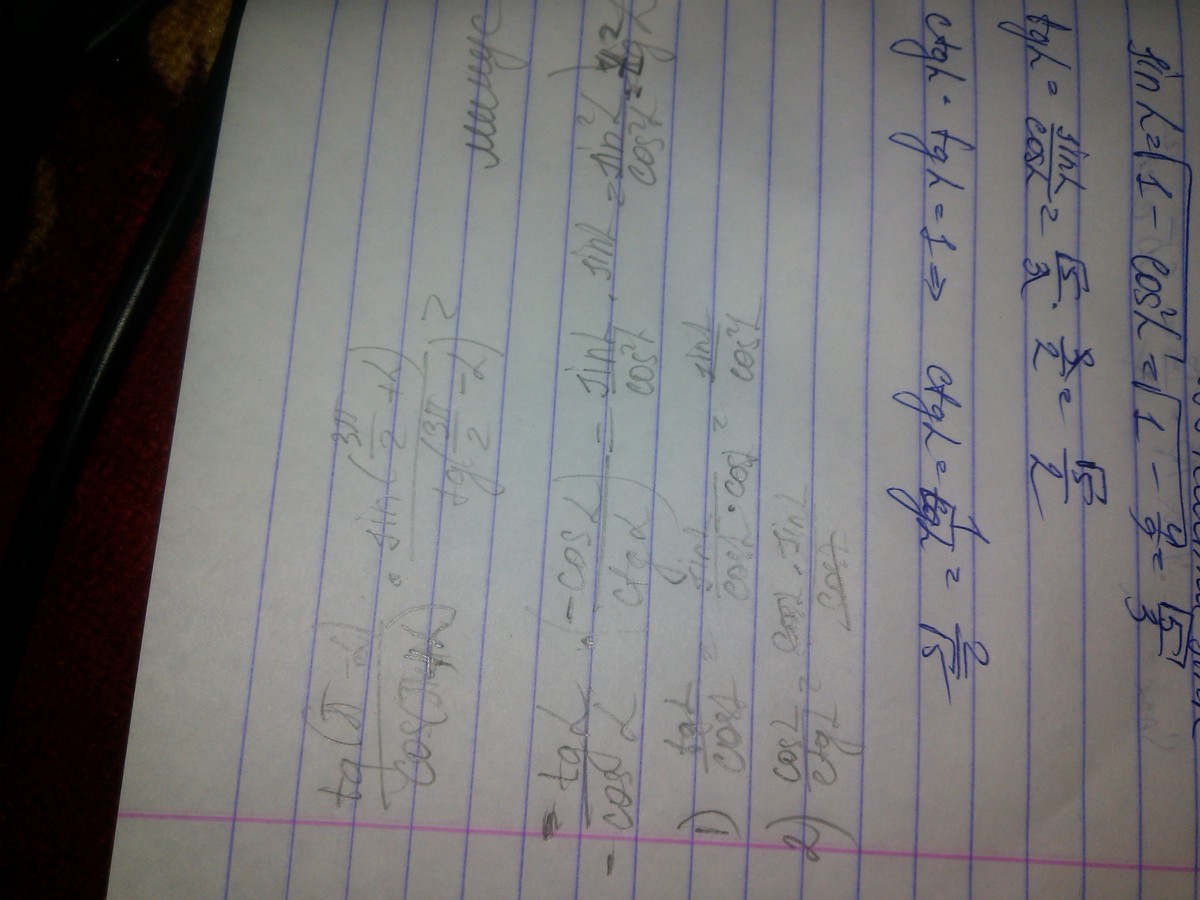 sin α = √1 − cos²α = √1 − 4/9 = √5/3
tg α = sin α/cos α = √5/3 · 3/2 = √5/2
ctg α · tg α = 1 ⇒ ctg α = 1/tg α = 2/√5
tg(π − α)/cos(π + α) · sin(3π/2 + α)/tg(3π/2 − α) =
минус
= − tg α/− cos α · (− cos α)/ctg α = − sin α/cos²α · sin α = − sin²α/cos²α = − tg²α
1) tg α/cos α = sin α/cos α · cos α = sin α/cos²α
2) cos α/ctg α = cos α · sin α/cos α